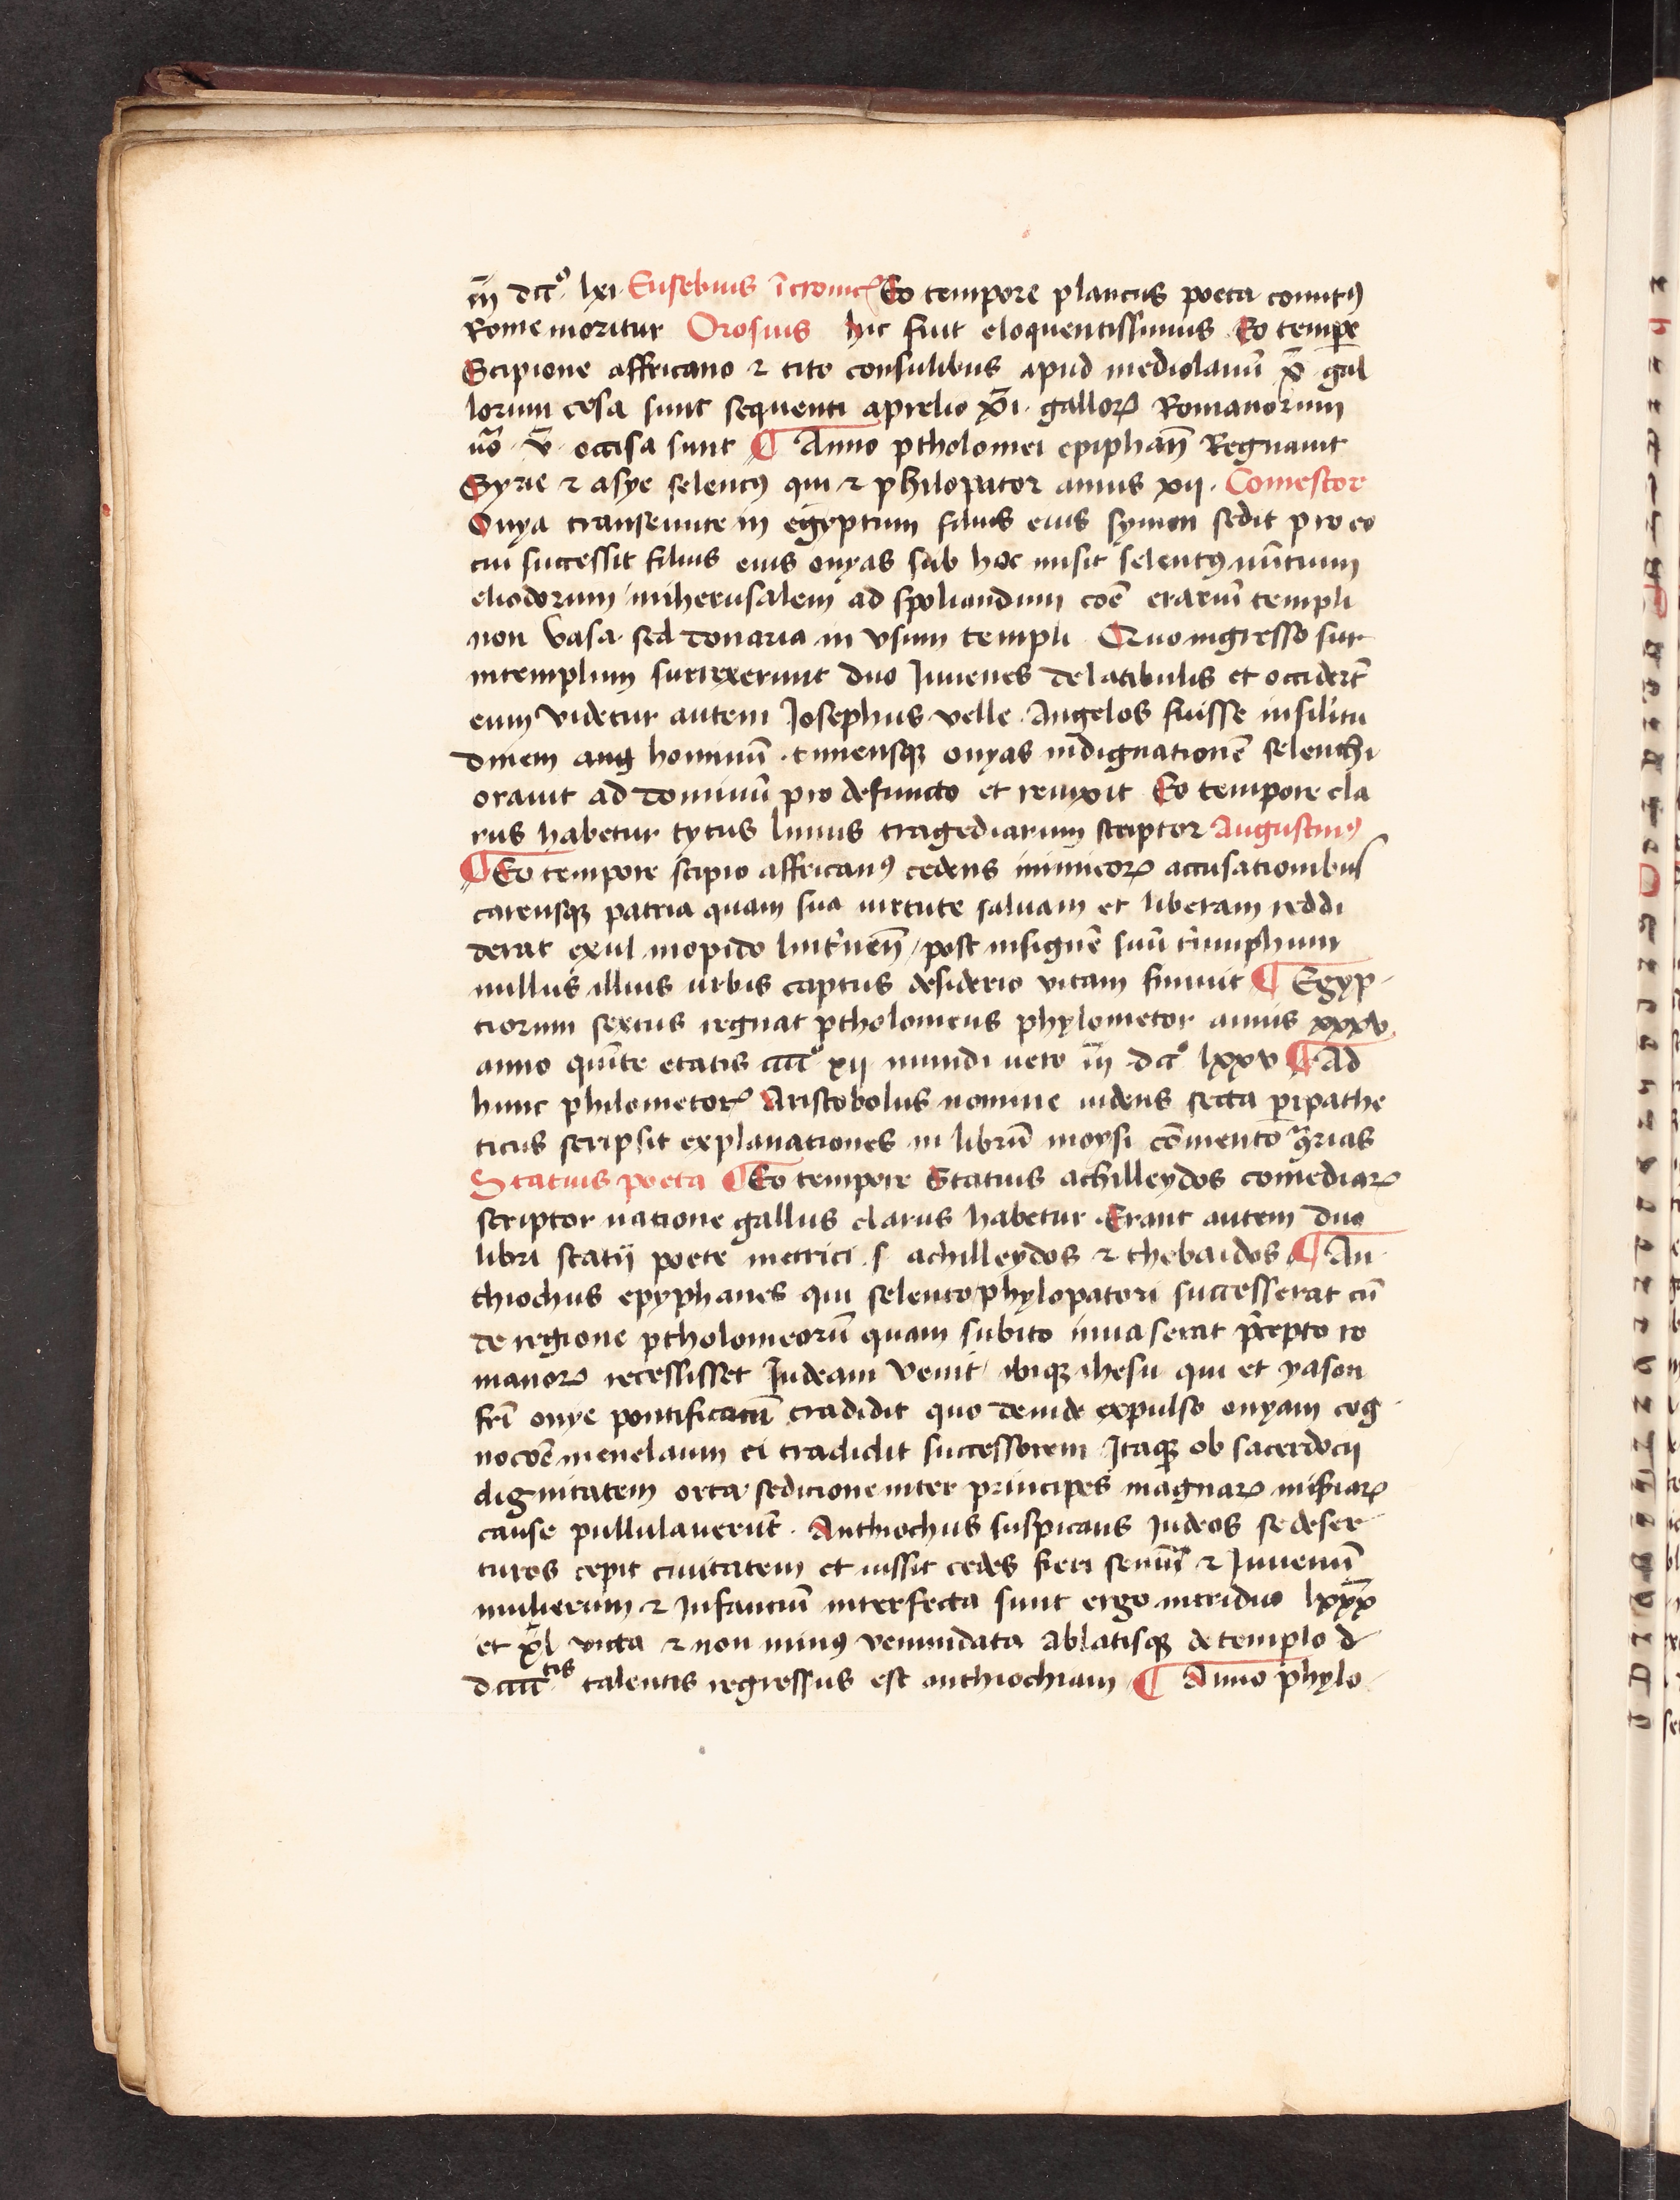 iiī dccº lxi Eusebius ī cronicꝭ Eo tempore plancus poeta comicꝰ
Rome moritur Orosius hic fuit eloquentissimus Eo tempe
Scipione affricano ⁊ tito consulibus apud mediolanū x̄ gal
lorum cesa sunt sequenti aprelio x̄i gallorꝝ Romanorum
uͦo v̄ occisa sunt ¶ Anno ptholomei epiphan̄ Regnauit
Syrie ⁊ asye seleucꝰ qui ⁊ philopator annis xii Comestor
Onya transeunte in egyptum filius eius symon sedit pro eo
cui successit filius eius onyas sub hoc misit seleucꝰ nūtium
eliodorum in iherusalem ad spoliandum coē erariū templi
non vasa sed donaria in vsum templi Quo ingresso sur
in templum surrexerunt duo Iuuenes de latibulis et occiderūt
eum videtur autem Iosephus velle Angelos fuisse in silitu
dinem aug hominū timensqꝫ onyas indignationē seleuchi
orauit ad dominū pro defuncto et reuixit Eo tempore cla
rus habetur tytus liuius tragediarum scriptor Augustinꝰ
¶ Eo tempore scipio affricanꝰ cedens inimicorꝝ accusationibus
carensqꝫ patria quam sua uirtute saluam et liberam reddi
derat exul in opido linternen̄ post insignē suū triumphum
nullus illius urbis captus desiderio vitam finiuit ¶ Egyp
tiorum sextus regnat ptholomeus phylometor annis xxxv
anno quīte etatis cccc̄º xii mundi uero iiī dccº lxxv ¶ Ad
hunc philometorꝭ Aristobolus nomine iudeus secta peripathe
ticus scripsit explanationes in librū moysi cōmentoꝰrias
Statius poeta ¶ Eo tempore Statius achilleydos comediarꝝ
scriptor natione gallus clarus habetur Erant autem duo
libri statii poete metrici s achilleydos ⁊ thebaidos ¶ An
thiochus epyphanes qui seleuco phylopatori successerat cū
de regione ptholomeorū quam subito inuaserat p̄cepto ro
manorꝝ recessisset Iudeam venit ibiqꝫ ihesu qui et yason
frī onye pontificatū tradidit quo deinde expulso onyam cog
nocoē menelaum ei tradidit successorem Itaqꝫ ob sacerdocii
dignitatem orta sedicione inter principes magnarꝝ misiarꝝ
cause pullulauerūt Anthiochus suspicans Iudeos se deser
turos cepit ciuitatem et iussit cedes fieri senum ⁊ Iuuenū
mulierum ⁊ Infantiū interfecta sunt ergo in triduo lxxx̄
et x̄l victa ⁊ non minꝰ venundata Ablatisqꝫ de templo d
dccccᵗⁱˢ talentis regressus est anthiochiam ¶ Anno phylo